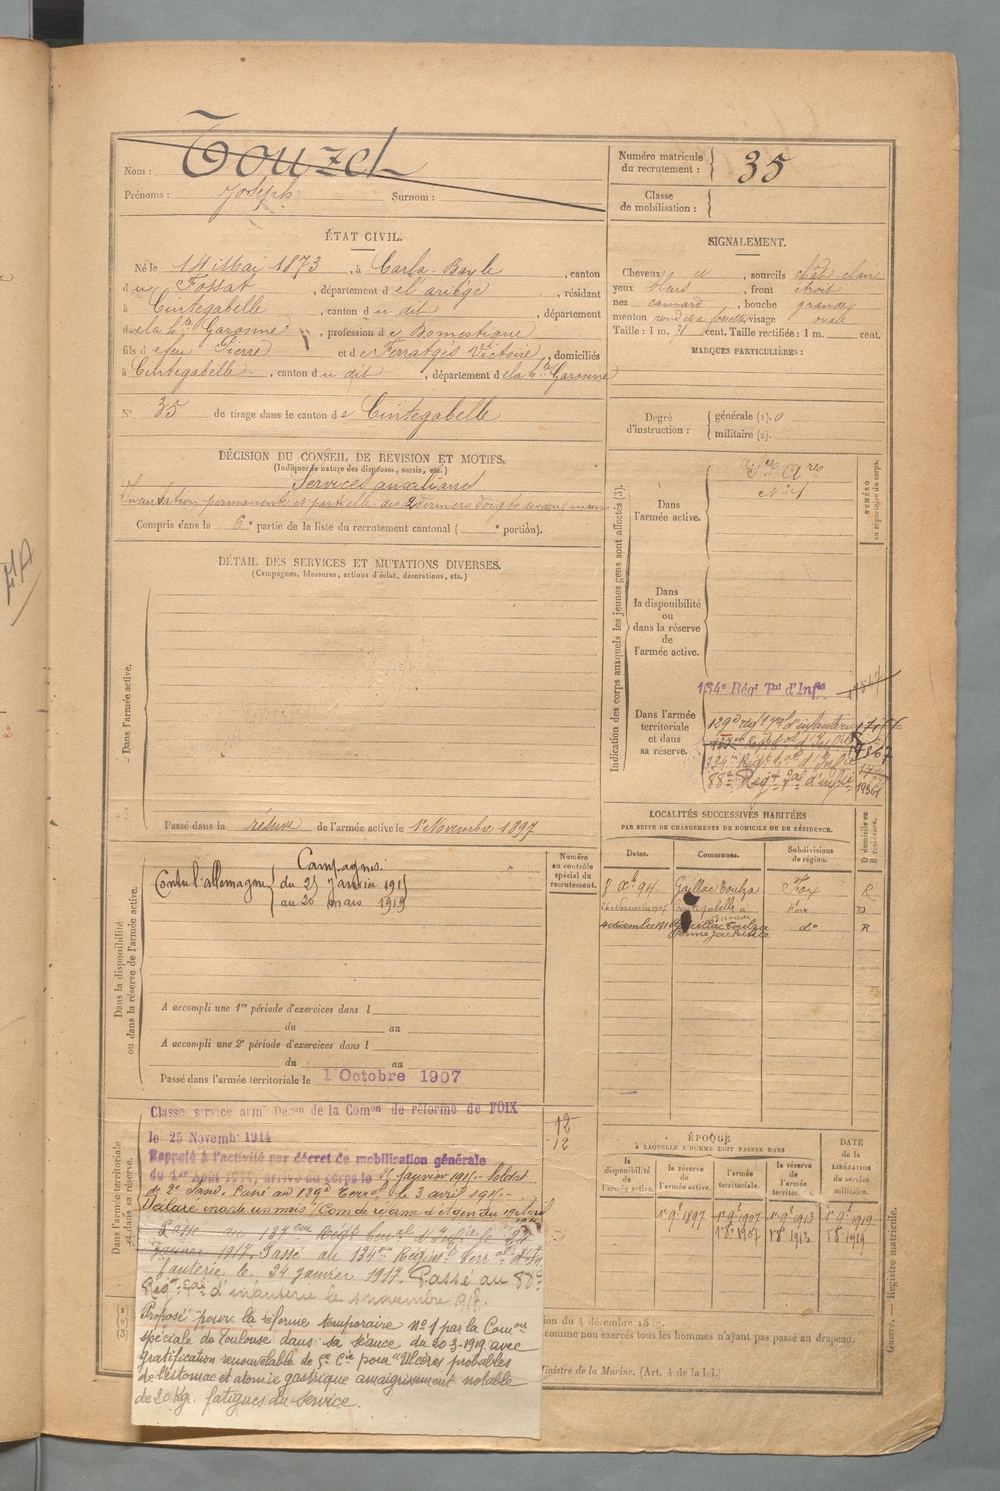 Nom : Touzet
Prénoms : Joseph Surnom :
Numéro matricule du recrutement : 35
Classe de mobilisation :
ÉTAT CIVIL.
Né le 14 Mai 1873, à Carla-Bayle, canton
du Fossat, département de l'ariège, résidant
à Cintegabelle, canton du dit, département
de la hte Garonne, profession de Domestique
fils de feu Pierre et de Ferratges Victoire, domiciliés
à Cintegabelle, canton du dit, département de la hte Garonne
N° 35 de tirage dans le canton de Cintegabelle
SIGNALEMENT.
Cheveux et, sourcils chât clair
yeux bleus, front étroit
nez camard, bouche grande
menton rond et à fossette, visage ovale
Taille : 1 m. 71 cent. Taille rectifiée : 1 m. cent.
MARQUES PARTICULIÈRES :
Degré d'instruction : générale (1). 0
militaire (2).
DÉCISION DU CONSEIL DE REVISION ET MOTIFS.
(Indiquer la nature des dispenses, sursis, etc.)
Services auxiliaires
Incurvation permanente et partielle des 2 derniers doigts des deux mains
Compris dans la 6e partie de la liste du recrutement cantonal ( e portion).
DÉTAIL DES SERVICES ET MUTATIONS DIVERSES.
(Campagnes, blessures, actions d'éclat, décorations, etc.)
Dans l'armée active.
Passé dans la réserve de l'armée active le 1er Novembre 1897
Indication des corps auxquels les jeunes gens sont affectés (3).
NUMÉRO au répertoire du corps.
Dans l'armée active.
Ses Ares
Dans la disponibilité ou dans la réserve de l'armée active.
Dans l'armée territoriale et dans sa réserve.
134e Régt Tal d'Infie
129e régt Tal d'infanterie
134e Régt tal d'Infie
88e Régt Tal d'infie 19361
LOCALITÉS SUCCESSIVES HABITÉES
PAR SUITE DE CHANGEMENTS DE DOMICILE OU DE RÉSIDENCE.
Dates. Communes. Subdivisions de région. D domicile ou R résidence.
8 Xbre 94 Gaillac Toulza Foix R
26 Novembre 1907 Cintegabelle Foix D
4 décembre 1910 Gaillac Toulza do R
Dans la disponibilité ou dans la réserve de l'armée active.
Numéro au contrôle spécial du recrutement.
Campagnes:
Contre l'allemagne du 25 Janvier 1915
au 20 mars 1919
A accompli une 1re période d'exercices dans l
du au
A accompli une 2e période d'exercices dans l
du au
Passé dans l'armée territoriale le 1 Octobre 1907
Dans l'armée territoriale et dans sa réserve.
Classé service armé Décon de la Comon de réforme de FOIX 12
le 25 Novembre 1914 12
Rappelé à l'activité par décret de mobilisation générale
du 1er Août 1914, arrivé au corps le 25 janvier 1915. Soldat
de 2e classe. Passé au 129e Terral le 3 avril 1915.
Déclaré inapte un mois Com de réforme d'Agen du 19 Avril
Passé au 134e Régt tal d'Infie le 24
janvier 1917. Passé au 134me Régimt Terral d'In
fanterie le 24 janvier 1917. Passé au 88e
Régt Tal d'infanterie le 1 novembre 1917.
Proposé pour la réforme temporaire N° 1 par la Comon
spéciale de Toulouse dans sa séance du 20-3-1919 avec
gratification renouvelable de 5e Cie pour "Ulcères probables
de l'estomac et atonie gastrique amaigrissement notable
de 20 Kg. fatigues du service.
ÉPOQUE
À LAQUELLE L'HOMME DOIT PASSER DANS
la disponibilité de l'armée active. la réserve de l'armée active. l'armée territoriale. la réserve de l'armée territor.
DATE de la LIBÉRATION du service militaire.
1er 9bre 1897 1er 9bre 1907 1er 9bre 1913 1er 9bre 1919
1er 8bre 1907 1er 8bre 1913 1er 8bre 1919
comme non exercés tous les hommes n'ayant pas passé au drapeau.
Ministre de la Marine. (Art. 4 de la loi.)
Guerre. — Registre matricule.